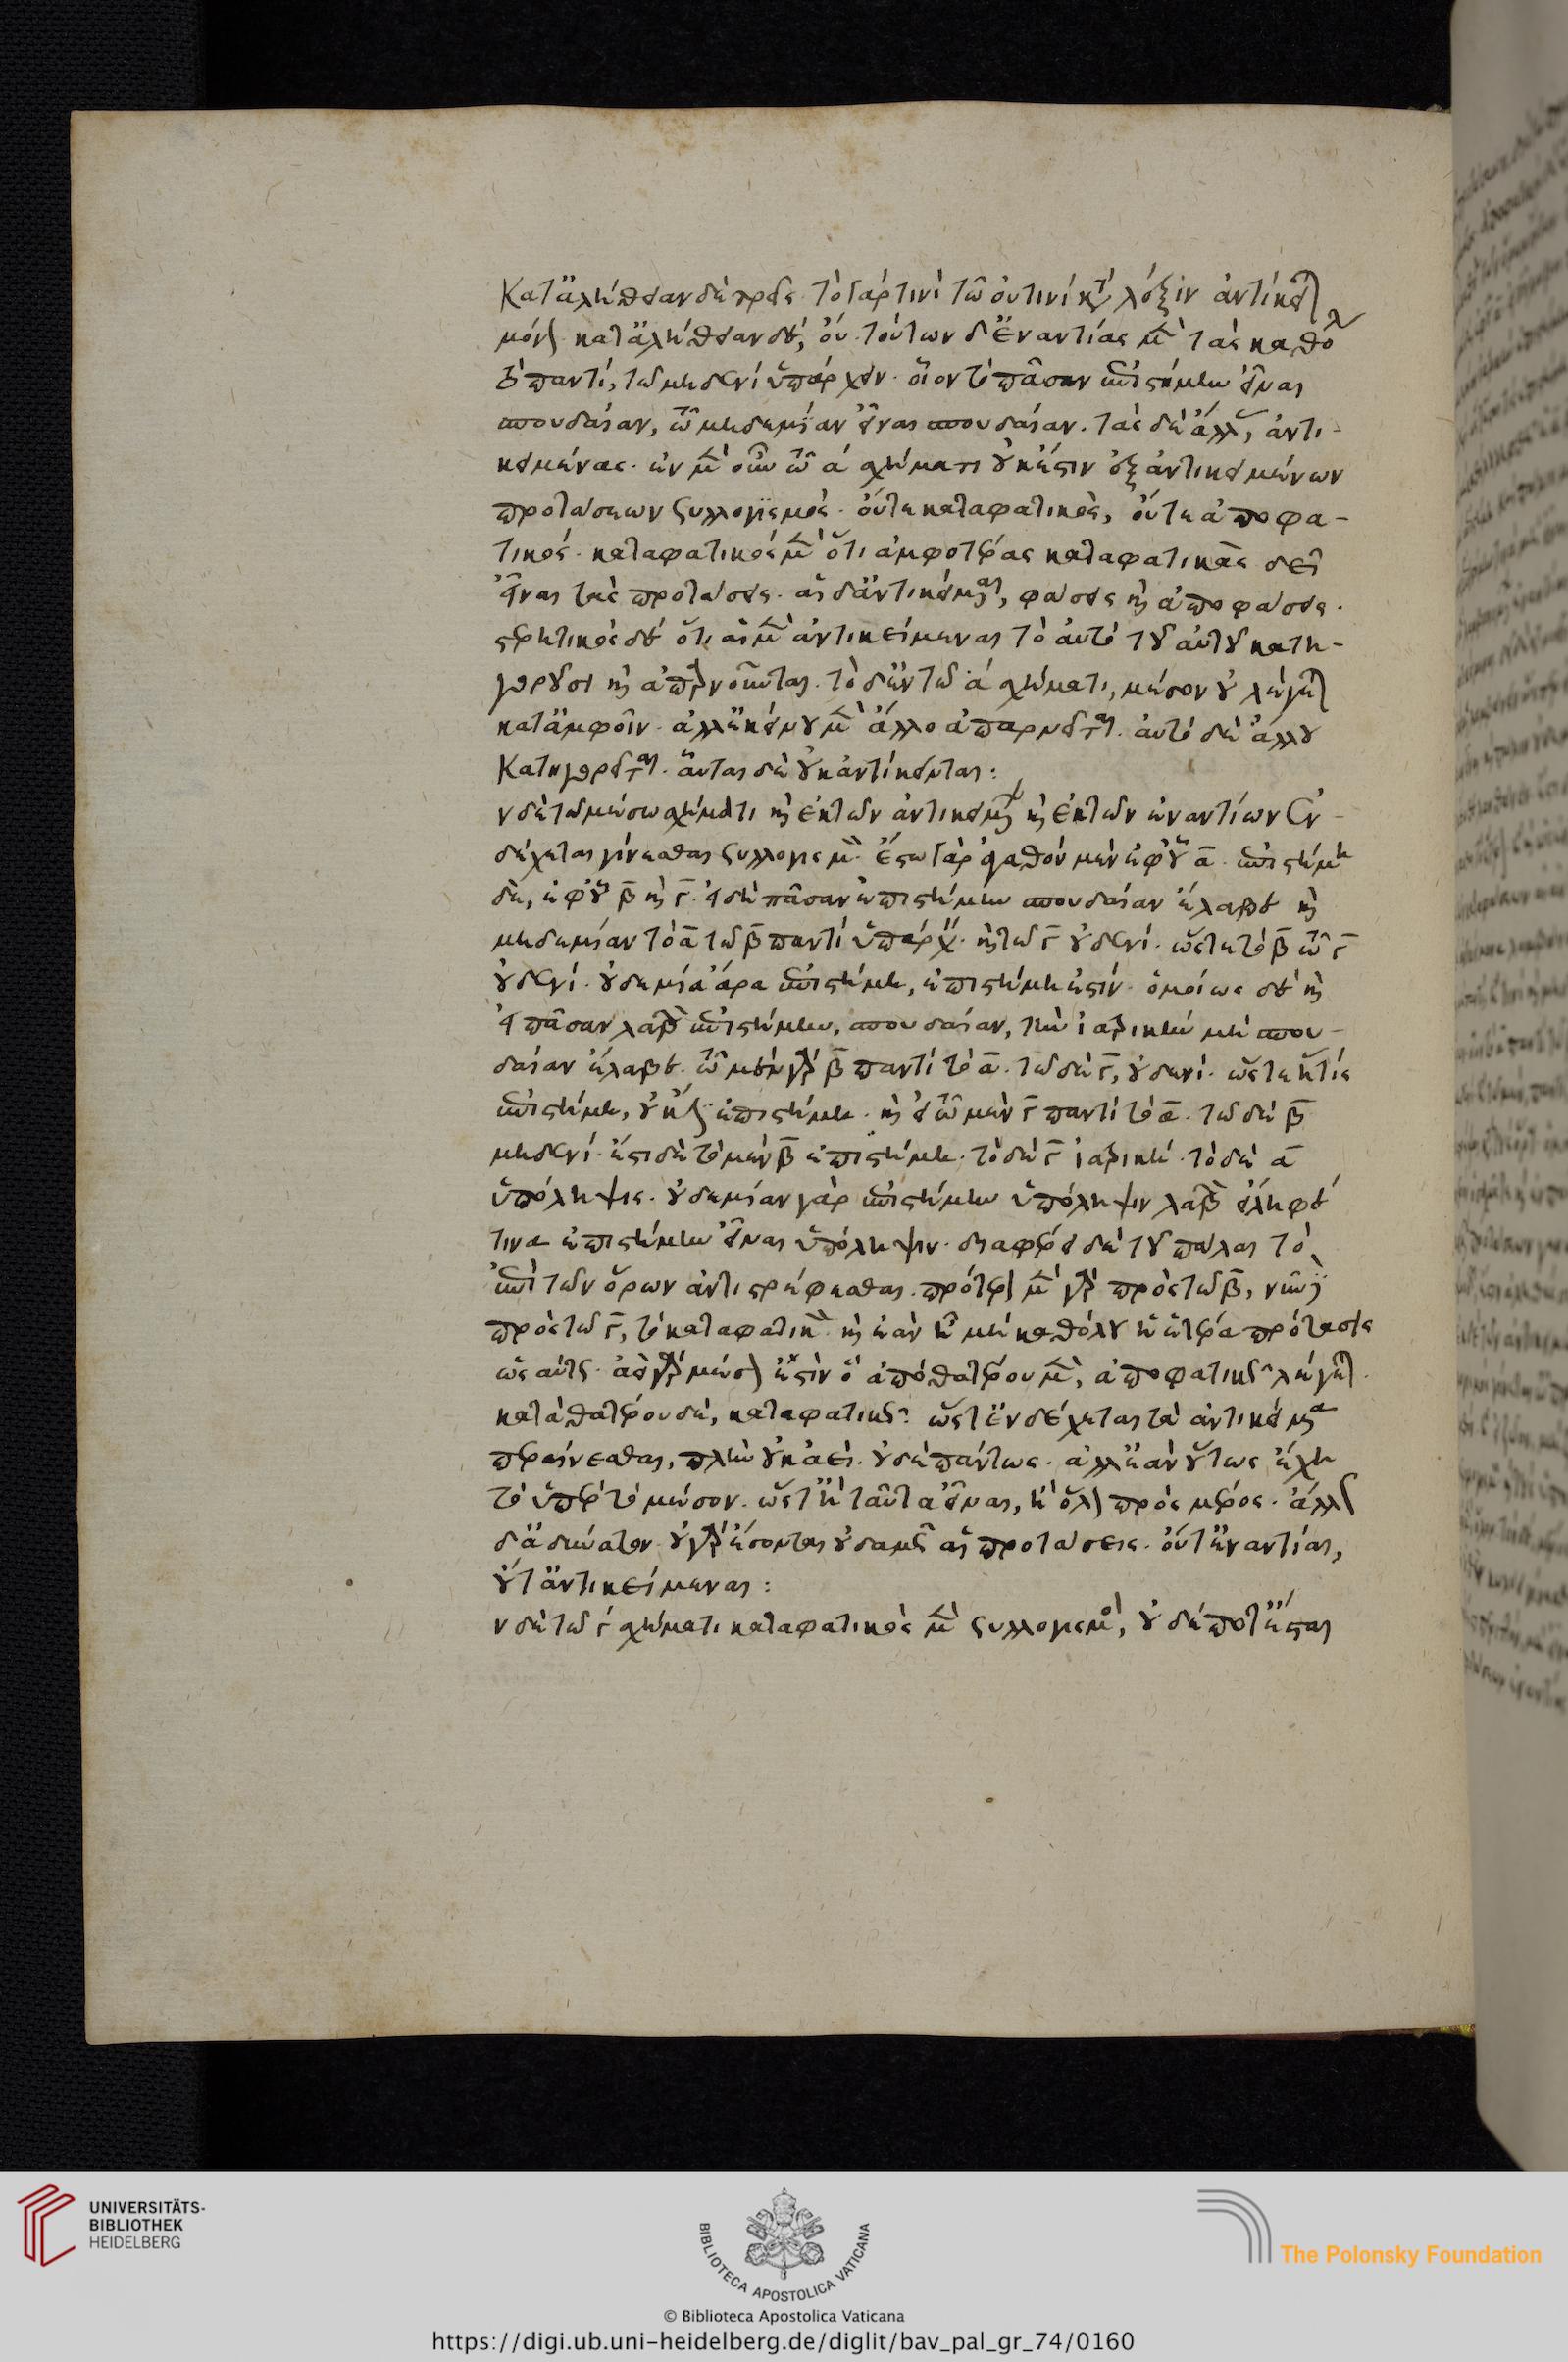 Κατ' ἀλήθειαν δὲ τρεῖς. τὸ γάρ τινὶ τῶ οὐ τινὶ κτ λέξιν ἀντίκειται
μόνον κατ' ἀλήθειαν δὲ, οὔ. τούτων δ' ἐναντίας μὲν τὰς καθόλ
τὸ παντὶ, τῶ μηδενὶ ὑπάρχειν. οἷον τὸ πᾶσαν ἐπιστήμην εἶναι
σπουδαίαν, τῶ μηδεμίαν εἶναι σπουδαίαν. τὰς δὲ ἄλλας, ἀντι-
κειμένας. ἐν μὲν οὖν τῶ ά σχήματι οὐκ ἔστιν ἐξ ἀντικειμένων
προτάσεων συλλογισμός. οὔτε καταφατικὸς, οὔτε ἀποφα-
τικός. καταφατικὸς μὲν ὅτι ἀμφοτέρας καταφατικὰς δεῖ
εἶναι τὰς προτάσεις. αἱ δ' ἀντικείμεναι, φάσις καὶ ἀπόφασις.
στερητικὸς δὲ ὅτι αἱ μὲν ἀντικείμεναι τὸ αὐτὸ τοῦ αὐτοῦ κατη-
γοροῦσι καὶ ἀπαρνοῦνται. τὸ δ' ἐν τῶ ά σχήματι, μέσον οὐ λέγεται
κατ' ἀμφοῖν. ἀλλ' ἐκείνου μὲν ἄλλο ἀπαρνεῖται. αὐτὸ δὲ ἄλλου
Κατηγορεῖται. αὗται δὲ οὐκ ἀντίκεινται:
ν δὲ τῶ μέσω σχήματι καὶ ἐκ τῶν ἀντικειμένων καὶ ἐκ τῶν ἐναντίων ἐν-
δέχεται γίνεσθαι συλλογισμόν. ἔστω γὰρ ἀγαθὸν μὲν ἐφ' οὗ α. ἐπιστήμη
δὲ, ἐφ' οὗ β καὶ γ. εἰ δὴ πᾶσαν ἐπιστήμην σπουδαίαν ἔλαβε καὶ
μηδεμίαν τὸ α τῶ β παντὶ ὑπάρχει. καὶ τῶ γ οὐδενί. ὥστε τὸ β τῶ γ
οὐδενί. οὐδεμία ἄρα ἐπιστήμη, ἐπιστήμη ἐστίν. ὁμοίως δὲ καὶ
εἰ πᾶσαν λαβὼν ἐπιστήμην, σπουδαίαν, τὴν ἰατρικὴν μὴ σπου-
δαίαν ἔλαβε. τῶ μὲν γὰρ β παντὶ τὸ α. τῶ δὲ γ, οὐδενί. ὥστε ἥ τις
ἐπιστήμη, οὐκ ἔσται ἐπιστήμη. καὶ εἰ τῶ μὲν γ παντὶ τὸ α. τῶ δὲ β
μηδενί. ἔστι δὲ τὸ μὲν β ἐπιστήμη. τὸ δὲ γ ἰατρική. τὸ δὲ α
ὑπόληψις. οὐδεμίαν γὰρ ἐπιστήμην ὑπόληψιν λαβὼν εἴληφέ
τινα ἐπιστήμην εἶναι ὑπόληψιν. διαφέρει δὲ τοῦ πάλαι τὸ
ἐπὶ τῶν ὅρων ἀντιστρέφεσθαι. πρότερον μὲν γὰρ πρὸς τῶ β, νῦν δὲ
πρὸς τῶ γ, τὸ καταφατικόν. καὶ ἐὰν ἦ μὴ καθόλου ἡ ἑτέρα πρότασις
ὡσαύτως. ἀεὶ γὰρ μέσον ἐστὶν ὃ ἀπὸ θατέρου μὲν, ἀποφατικῶς λέγεται.
κατὰ θατέρου δὲ, καταφατικῶς. ὥστ' ἐνδέχεται τὰ ἀντικείμενα
περαίνεσθαι, πλὴν οὐκ ἀεὶ. οὐδὲ πάντως. ἀλλ' ἐὰν οὕτως ἔχη
τὰ ὑπὸ τὸ μέσον. ὥστ' ἢ ταῦτα εἶναι, ἢ ὅλον πρὸς μέρος. ἄλλως
δ' ἀδύνατον. οὐ γὰρ ἔσονται οὐδαμῶς αἱ προτάσεις. οὔτ' ἐναντίαι,
οὔτ' ἀντικείμεναι:
ν δὲ τῶ γ σχήματι καταφατικὸς μὲν συλλογισμὸς, οὐδέποτ' ἔσται
UNIVERSITÄTS-
BIBLIOTHEK
HEIDELBERG
BIBLIOTECA APOSTOLICA VATICANA
The Polonsky Foundation
© Biblioteca Apostolica Vaticana
https://digi.ub.uni-heidelberg.de/diglit/bav_pal_gr_74/0160